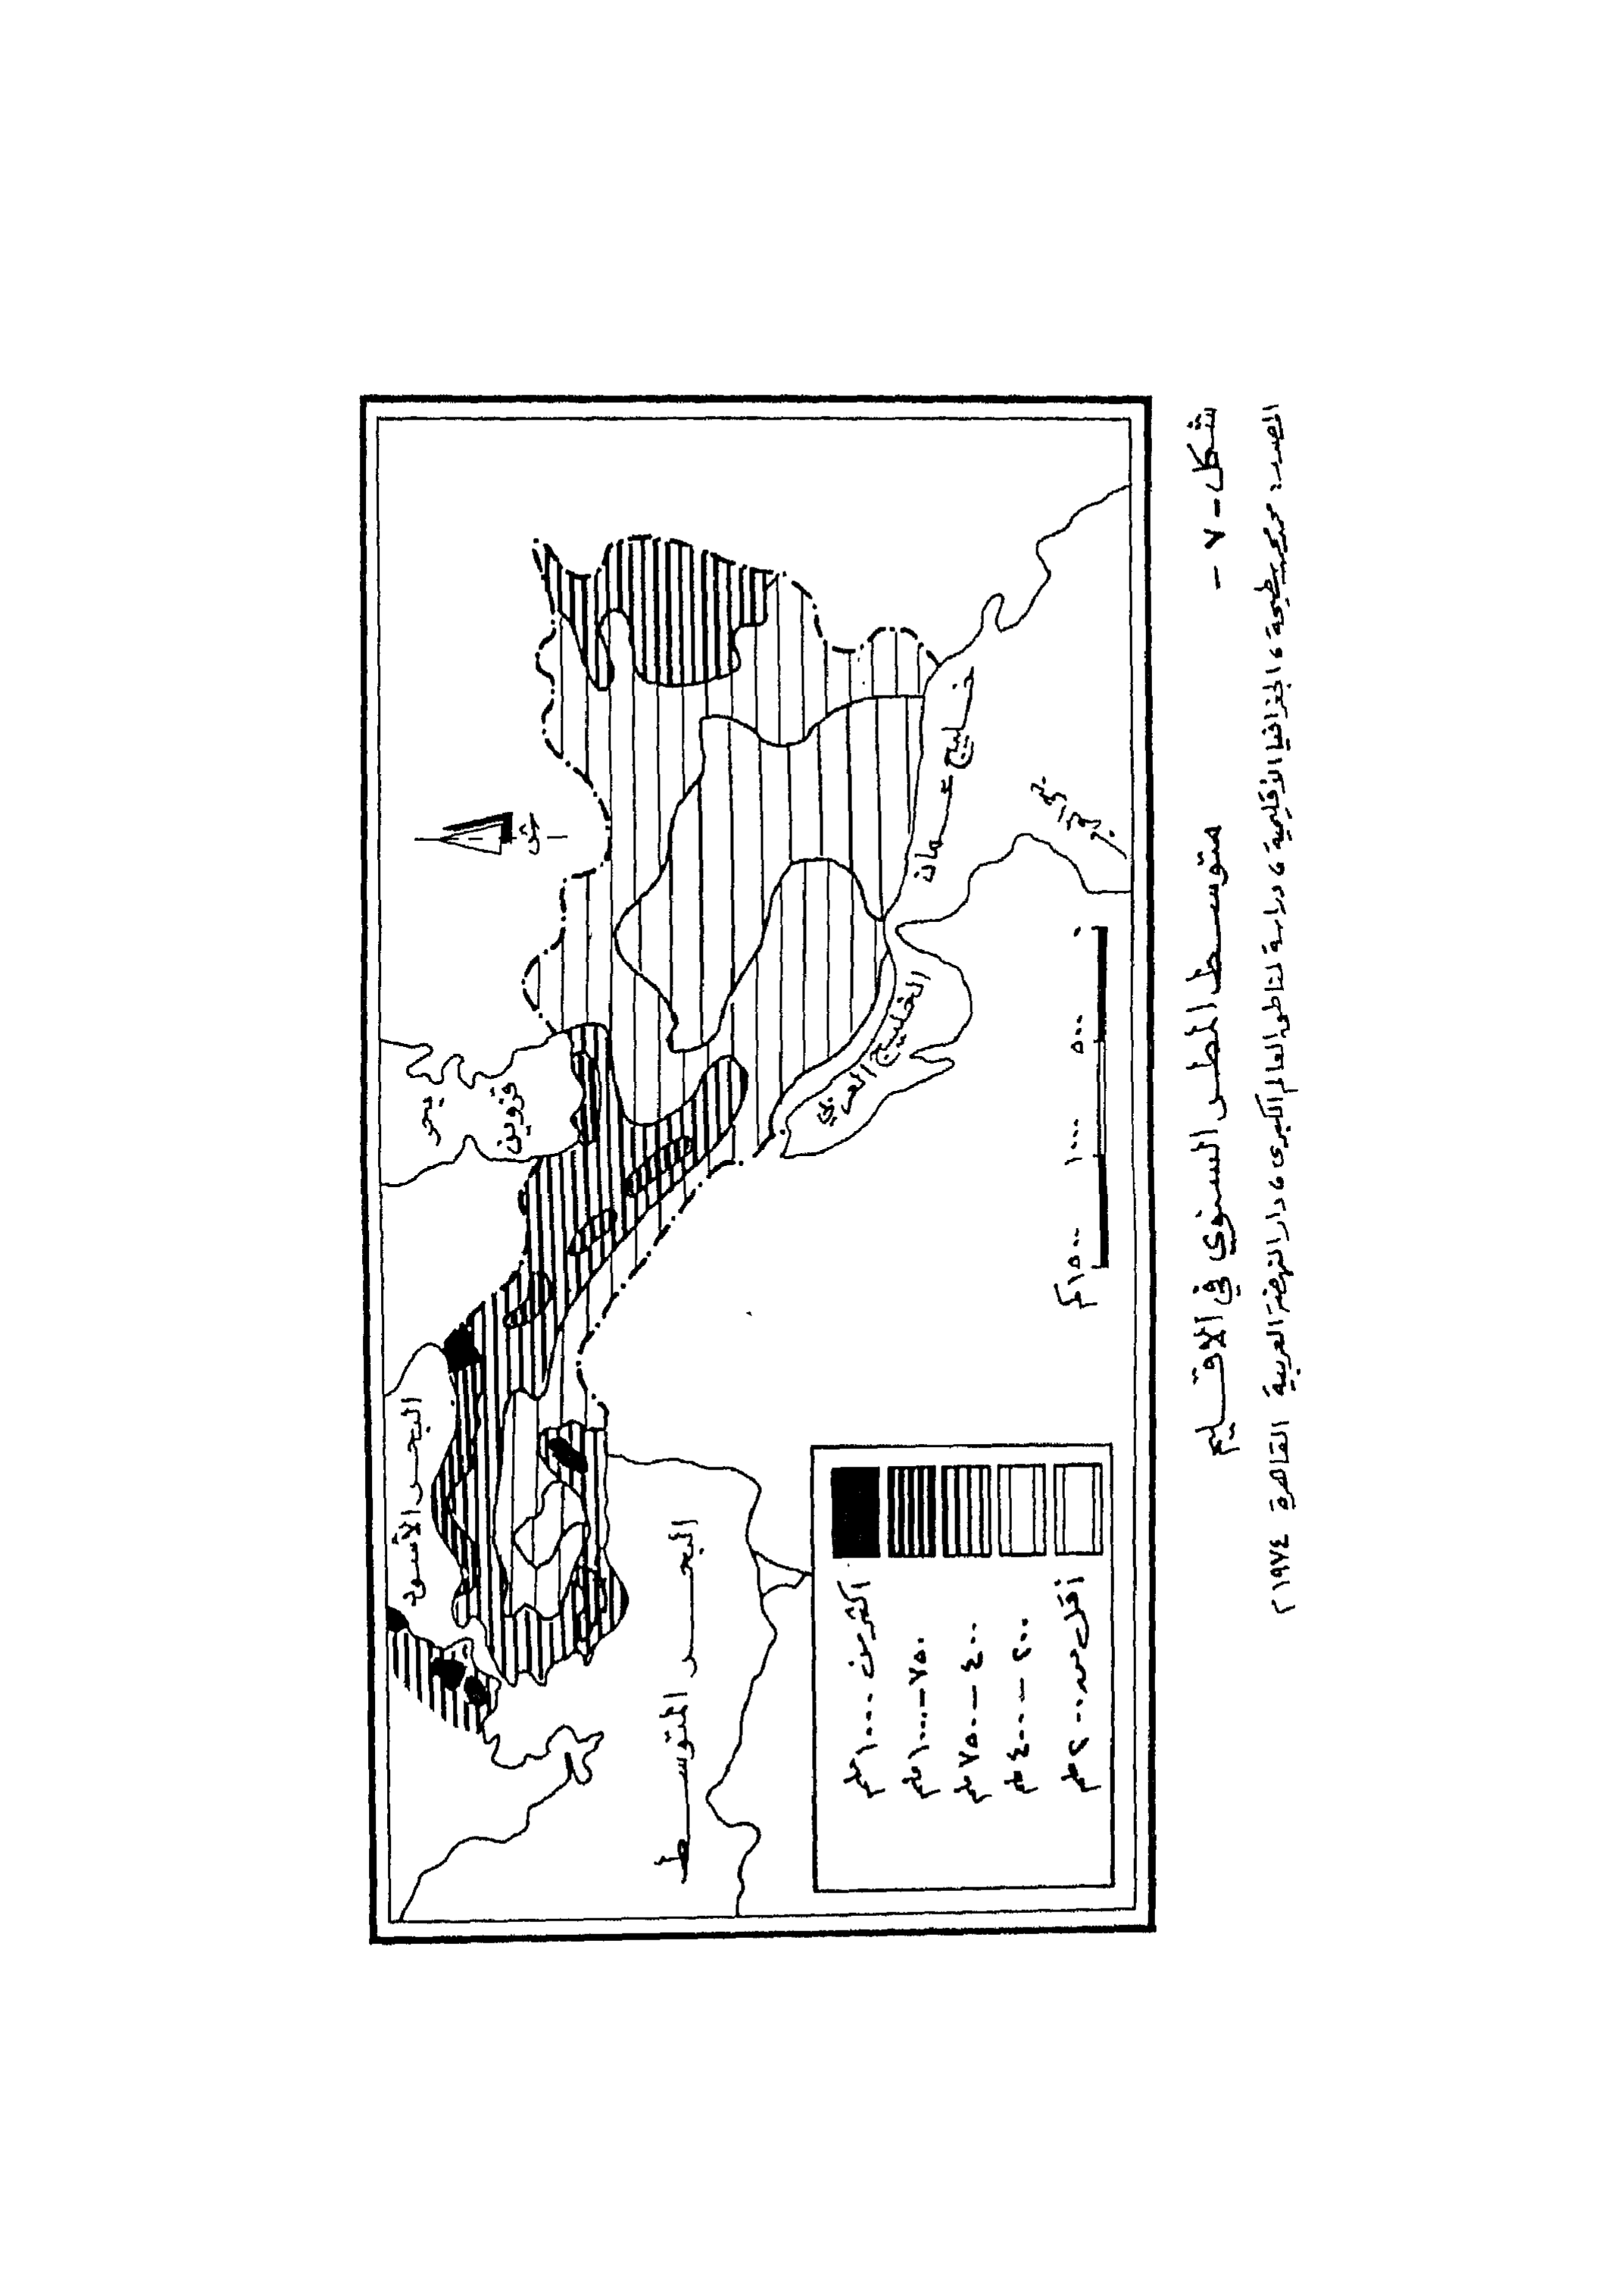 البحر الأسود
بحر
قزوين
ش
البحر المتوسط
الخليج العربي
خليج عمان
بحر العرب
أكثر من ١٠٠٠ ملم
٧٥٠-١٠٠٠ ملم
٤٠٠-٧٥٠ ملم
٢٠٠-٤٠٠ ملم
أقل من ٢٠٠ ملم
١٥٠٠كم ١٠٠٠ ٥٠٠ ٠
شكل -٧- متوسط المطر السنوي في الاقليم
المصدر: محمد خميس ، الجغرافيا الأقليمية ، دراسة لمناطق العالم الكبرى ، دار النهضة العربية القاهرة ١٩٧٤ م